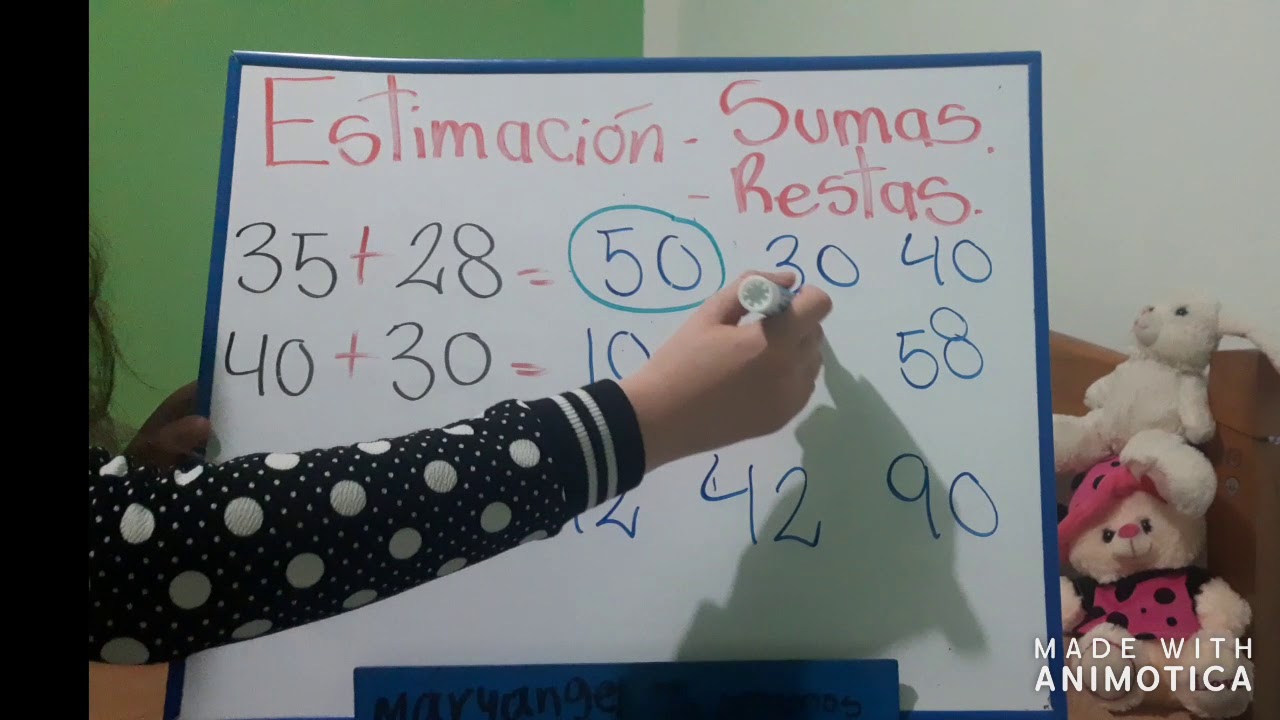 Estimación - Sumas.
- Restas.
35 + 28 = 50 30 40
40 + 30 = 10 58
42 90
MADE WITH
ANIMOTICA